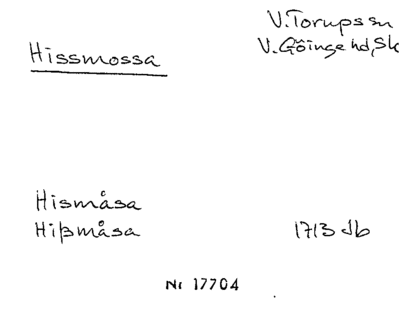 V.Torups sn
Hissmossa V.Göinge hd, Sk
Hismåsa
Hißmåsa 1713 Jb
Nr 17704